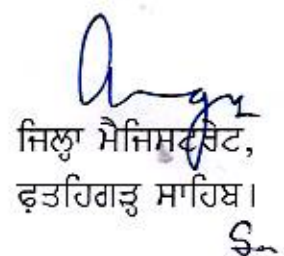 ਜਿਲ੍ਹਾ ਮੈਜਿਸਟਰੇਟ,
ਫ਼ਤਹਿਗੜ੍ਹ ਸਾਹਿਬ।